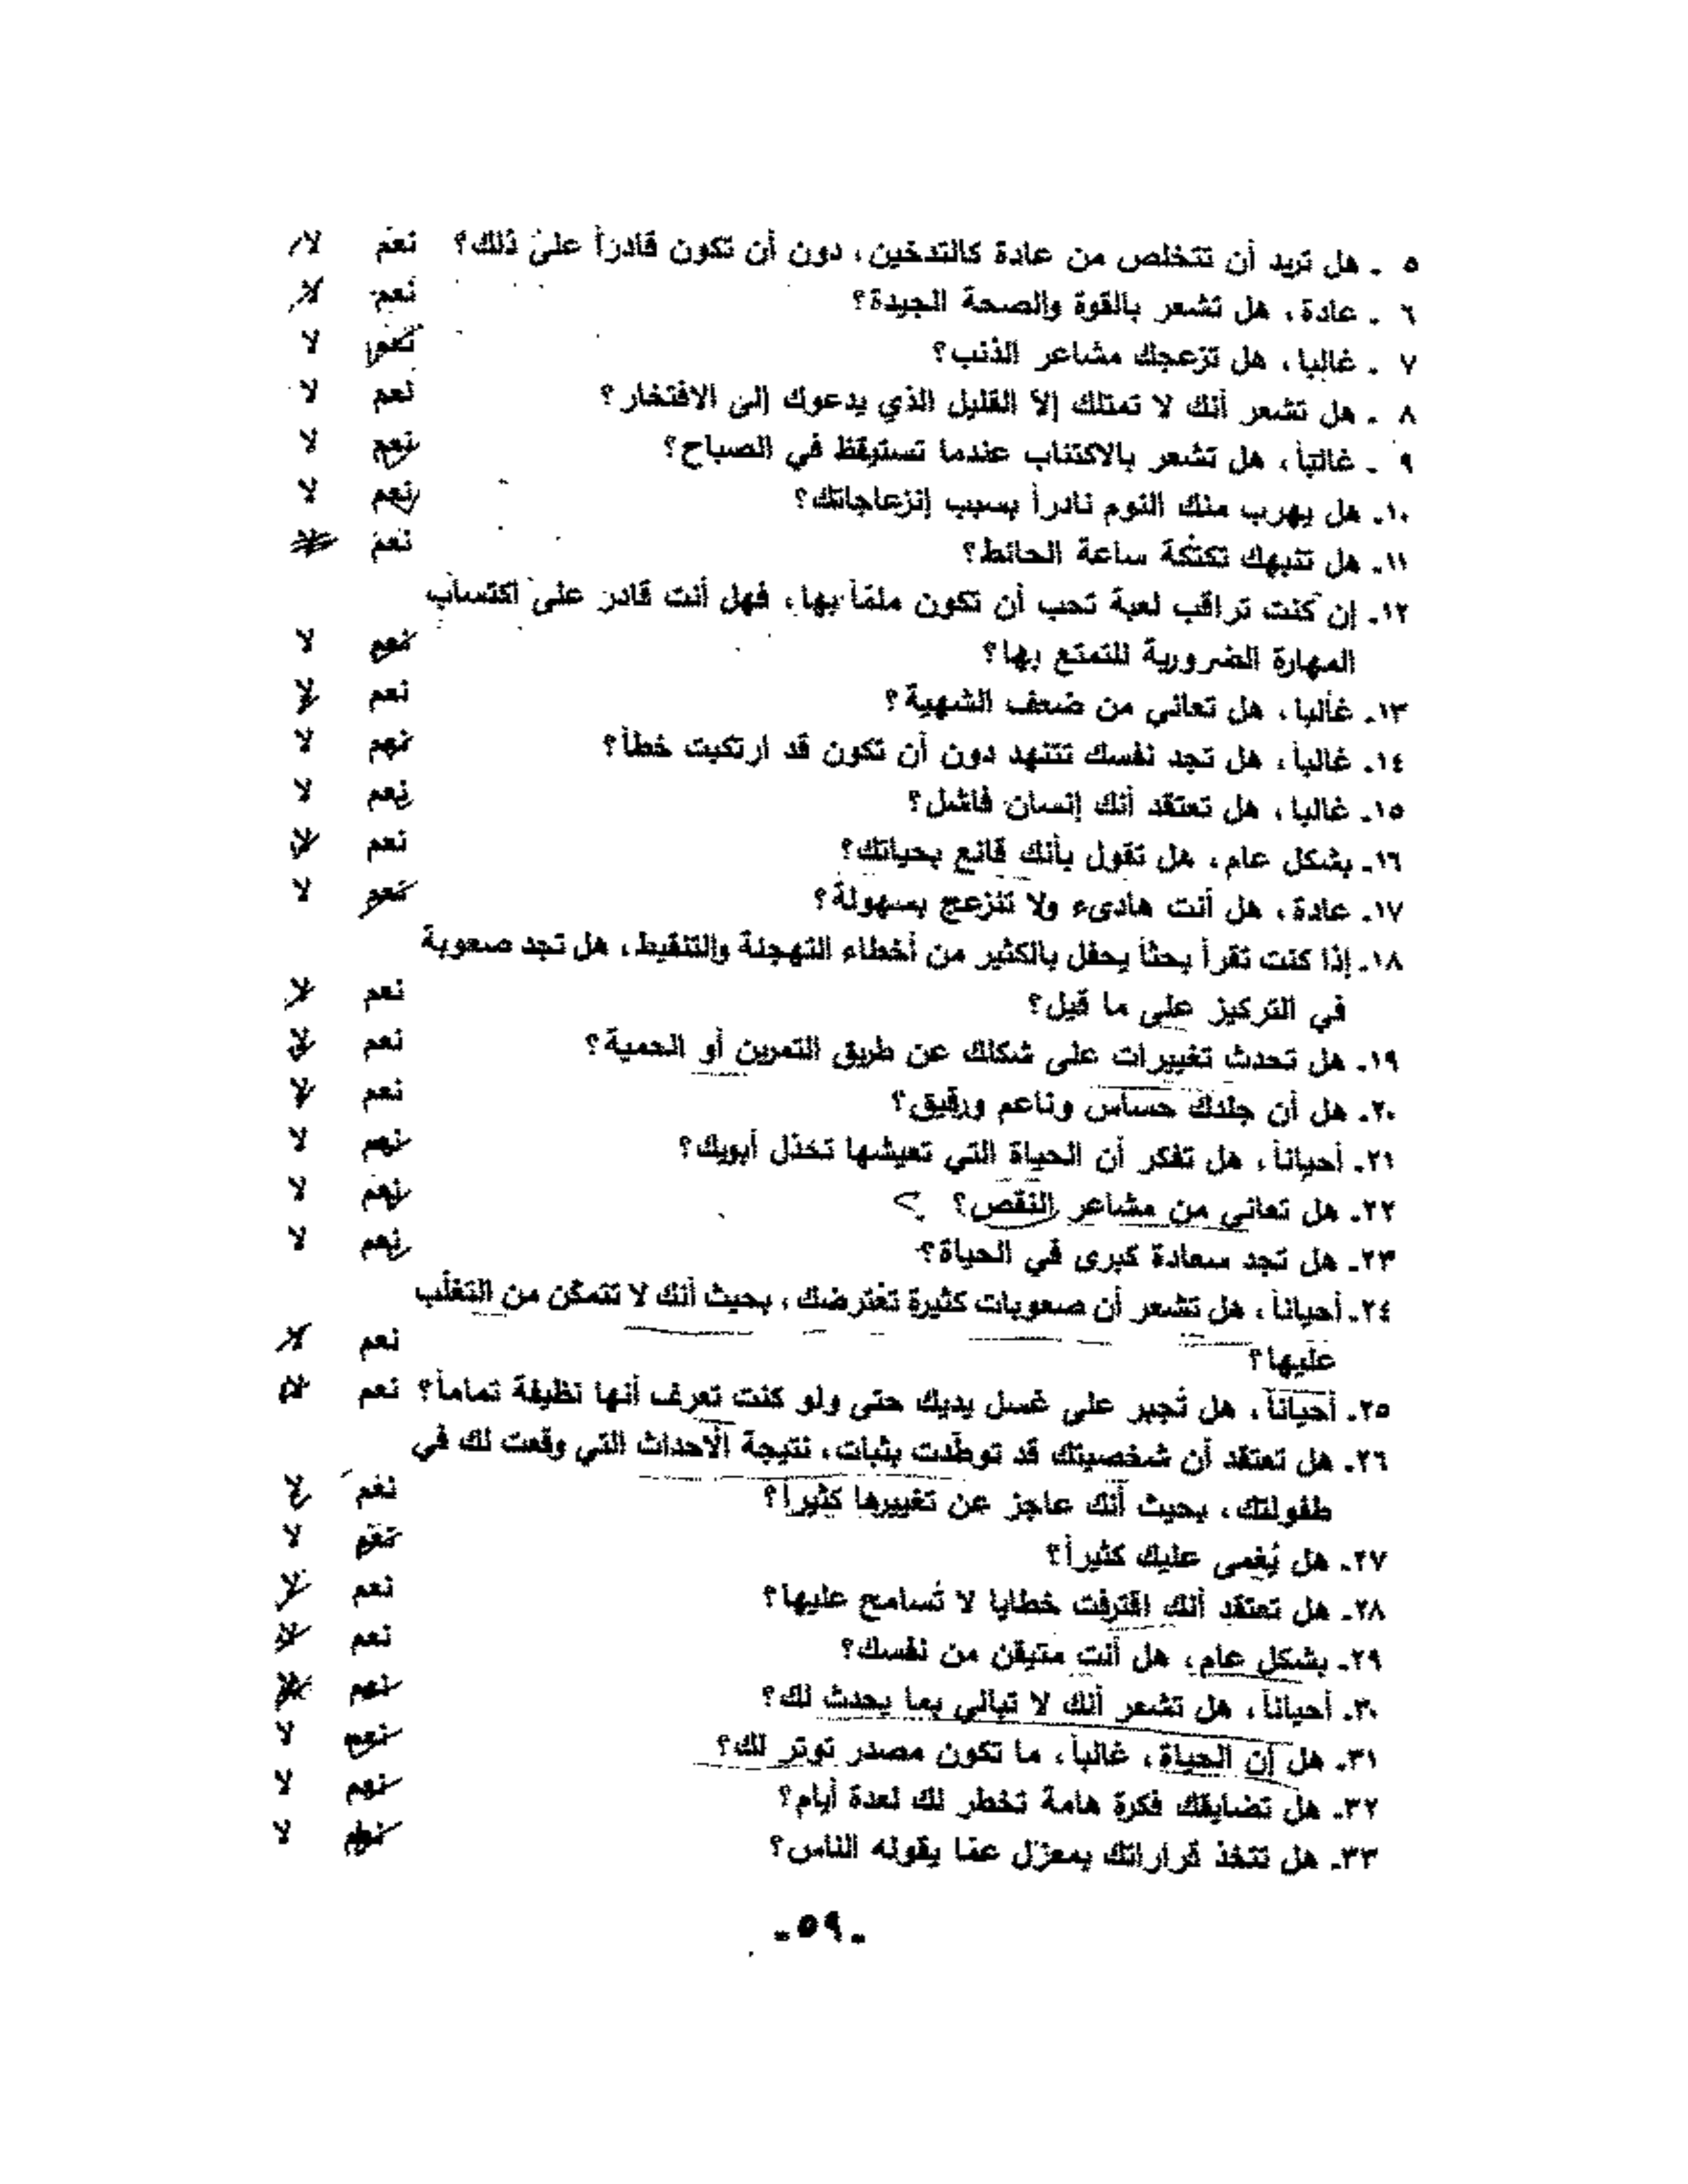 ٥ - هل تريد أن تتخلص من عادة كالتدخين، دون أن تكون قادراً على ذلك؟ نعم لا
٦ - عادة، هل تشعر بالقوة والصحة الجيدة؟ نعم لا
٧ - غالبا، هل تزعجك مشاعر الذنب؟ نعم لا
٨ - هل تشعر أنك لا تمتلك إلا القليل الذي يدعوك إلى الافتخار؟ نعم لا
٩ - غالباً، هل تشعر بالاكتئاب عندما تستيقظ في الصباح؟ نعم لا
١٠- هل يهرب منك النوم نادراً بسبب إنزعاجاتك؟ نعم لا
١١- هل تنبهك تكتكة ساعة الحائط؟ نعم لا
١٢- إن كنت تراقب لعبة تحب أن تكون ملمّاً بها، فهل أنت قادر على اكتساب
المهارة الضرورية للتمتع بها؟ نعم لا
١٣- غالبا، هل تعاني من ضعف الشهية؟ نعم لا
١٤- غالباً، هل تجد نفسك تتنهد دون أن تكون قد ارتكبت خطأ؟ نعم لا
١٥- غالبا، هل تعتقد أنك إنسان فاشل؟ نعم لا
١٦- بشكل عام، هل تقول بأنك قانع بحياتك؟ نعم لا
١٧- عادة، هل أنت هادىء ولا تنزعج بسهولة؟ نعم لا
١٨- إذا كنت تقرأ بحثاً يحفل بالكثير من أخطاء التهجئة والتنقيط، هل تجد صعوبة
في التركيز على ما قيل؟ نعم لا
١٩- هل تحدث تغييرات على شكلك عن طريق التمرين أو الحمية؟ نعم لا
٢٠- هل أن جلدك حساس وناعم ورقيق؟ نعم لا
٢١- أحياناً، هل تفكر أن الحياة التي تعيشها تخذل أبويك؟ نعم لا
٢٢- هل تعاني من مشاعر النقص؟ نعم لا
٢٣- هل تجد سعادة كبرى في الحياة؟ نعم لا
٢٤- أحياناً، هل تشعر أن صعوبات كثيرة تعترضك، بحيث أنك لا تتمكّن من التغلّب
عليها؟ نعم لا
٢٥- أحياناً، هل تُجبر على غسل يديك حتى ولو كنت تعرف أنها نظيفة تماماً؟ نعم لا
٢٦- هل تعتقد أن شخصيتك قد توطّدت بثبات، نتيجة الأحداث التي وقعت لك في
طفولتك، بحيث أنك عاجز عن تغييرها كثيراً؟ نعم لا
٢٧- هل يُغمى عليك كثيراً؟ نعم لا
٢٨- هل تعتقد أنك اقترفت خطايا لا تُسامح عليها؟ نعم لا
٢٩- بشكل عام، هل أنت متيقن من نفسك؟ نعم لا
٣٠- أحياناً، هل تشعر أنك لا تبالي بما يحدث لك؟ نعم لا
٣١- هل إن الحياة، غالباً، ما تكون مصدر توتر لك؟ نعم لا
٣٢- هل تضايقك فكرة هامة تخطر لك لعدة أيام؟ نعم لا
٣٣- هل تتخذ قراراتك بمعزل عمّا يقوله الناس؟ نعم لا
-٥٩-